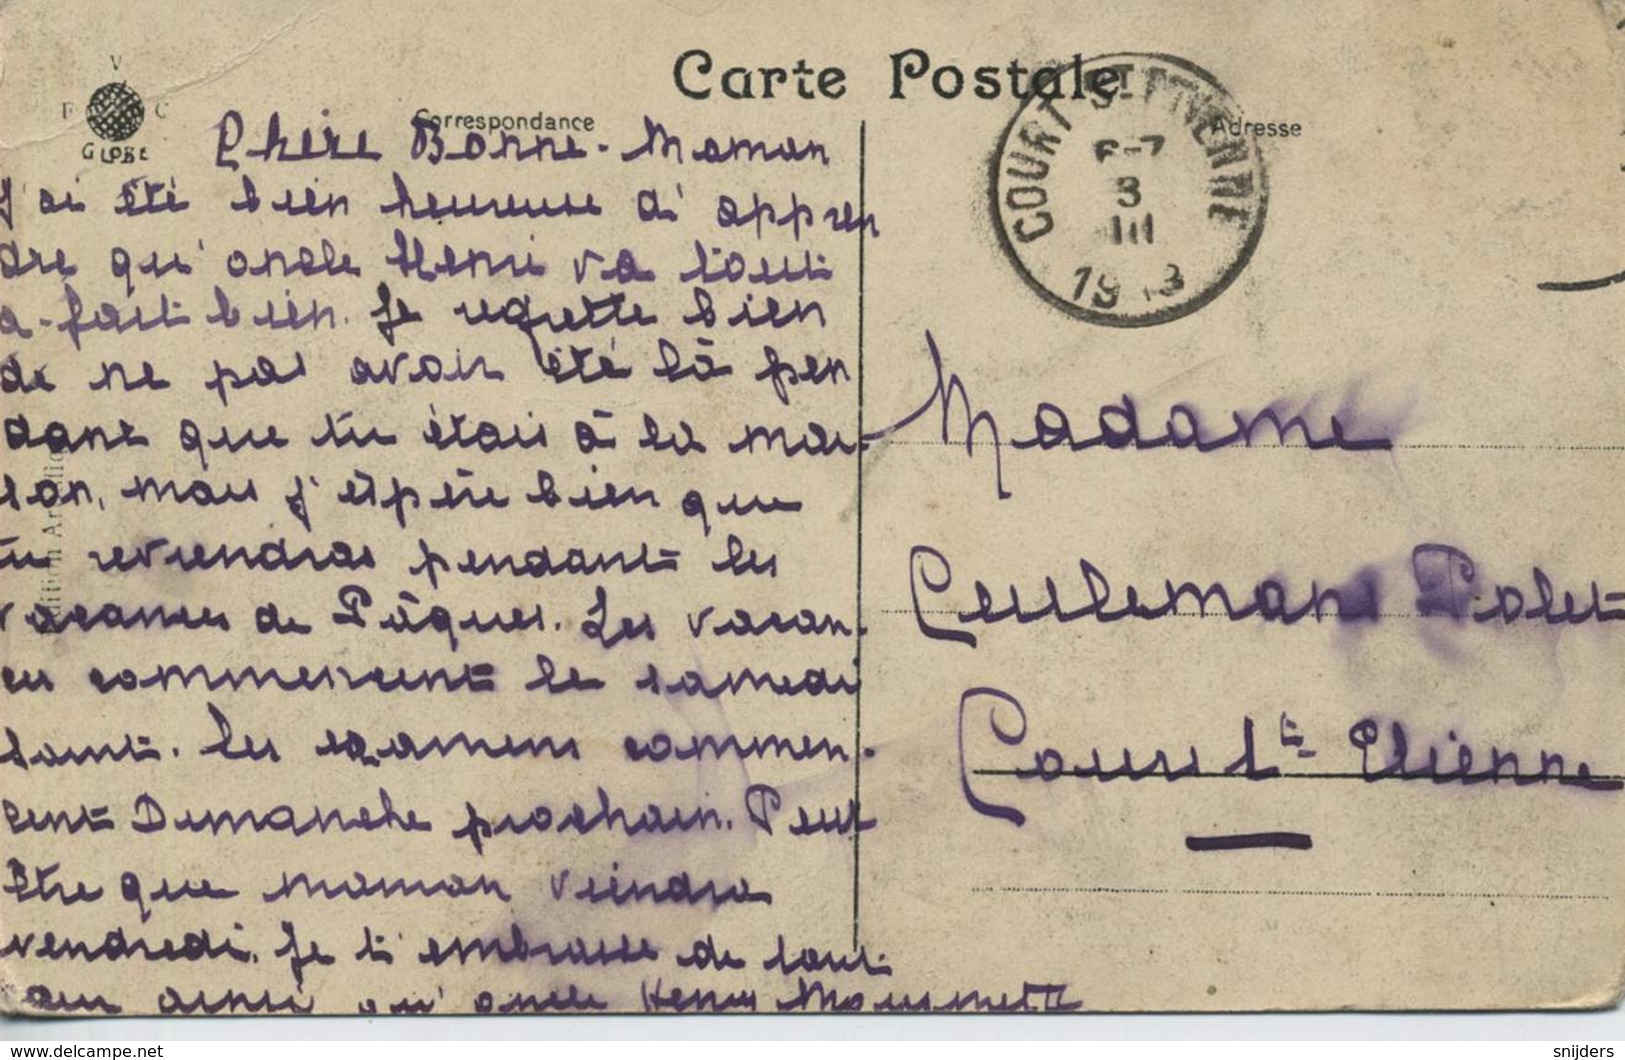 Carte Postale
Correspondance
Adresse
V
F C
GLOBE
COURT-ST-ETIENNE
6-7
3
III
Chère Bonne-Maman
J'ai été bien heureuse d'appren
dre qu'oncle Henri va tout
a-fait bien. Je regrette bien
de ne pas avoir été là pen
dant que tu étais à la mai-
son, mais j'espère bien que
tu reviendras pendant les
vacances de Pâques. Les vacan-
ces commencent le samedi
saint. Les examens commen-
cent Dimanche prochain. Peut
être que maman viendra
vendredi. Je t'embrasse de tout
ainsi qu'oncle Henri
Madame
Ceulemans Polet
Cour St Etienne
snijders